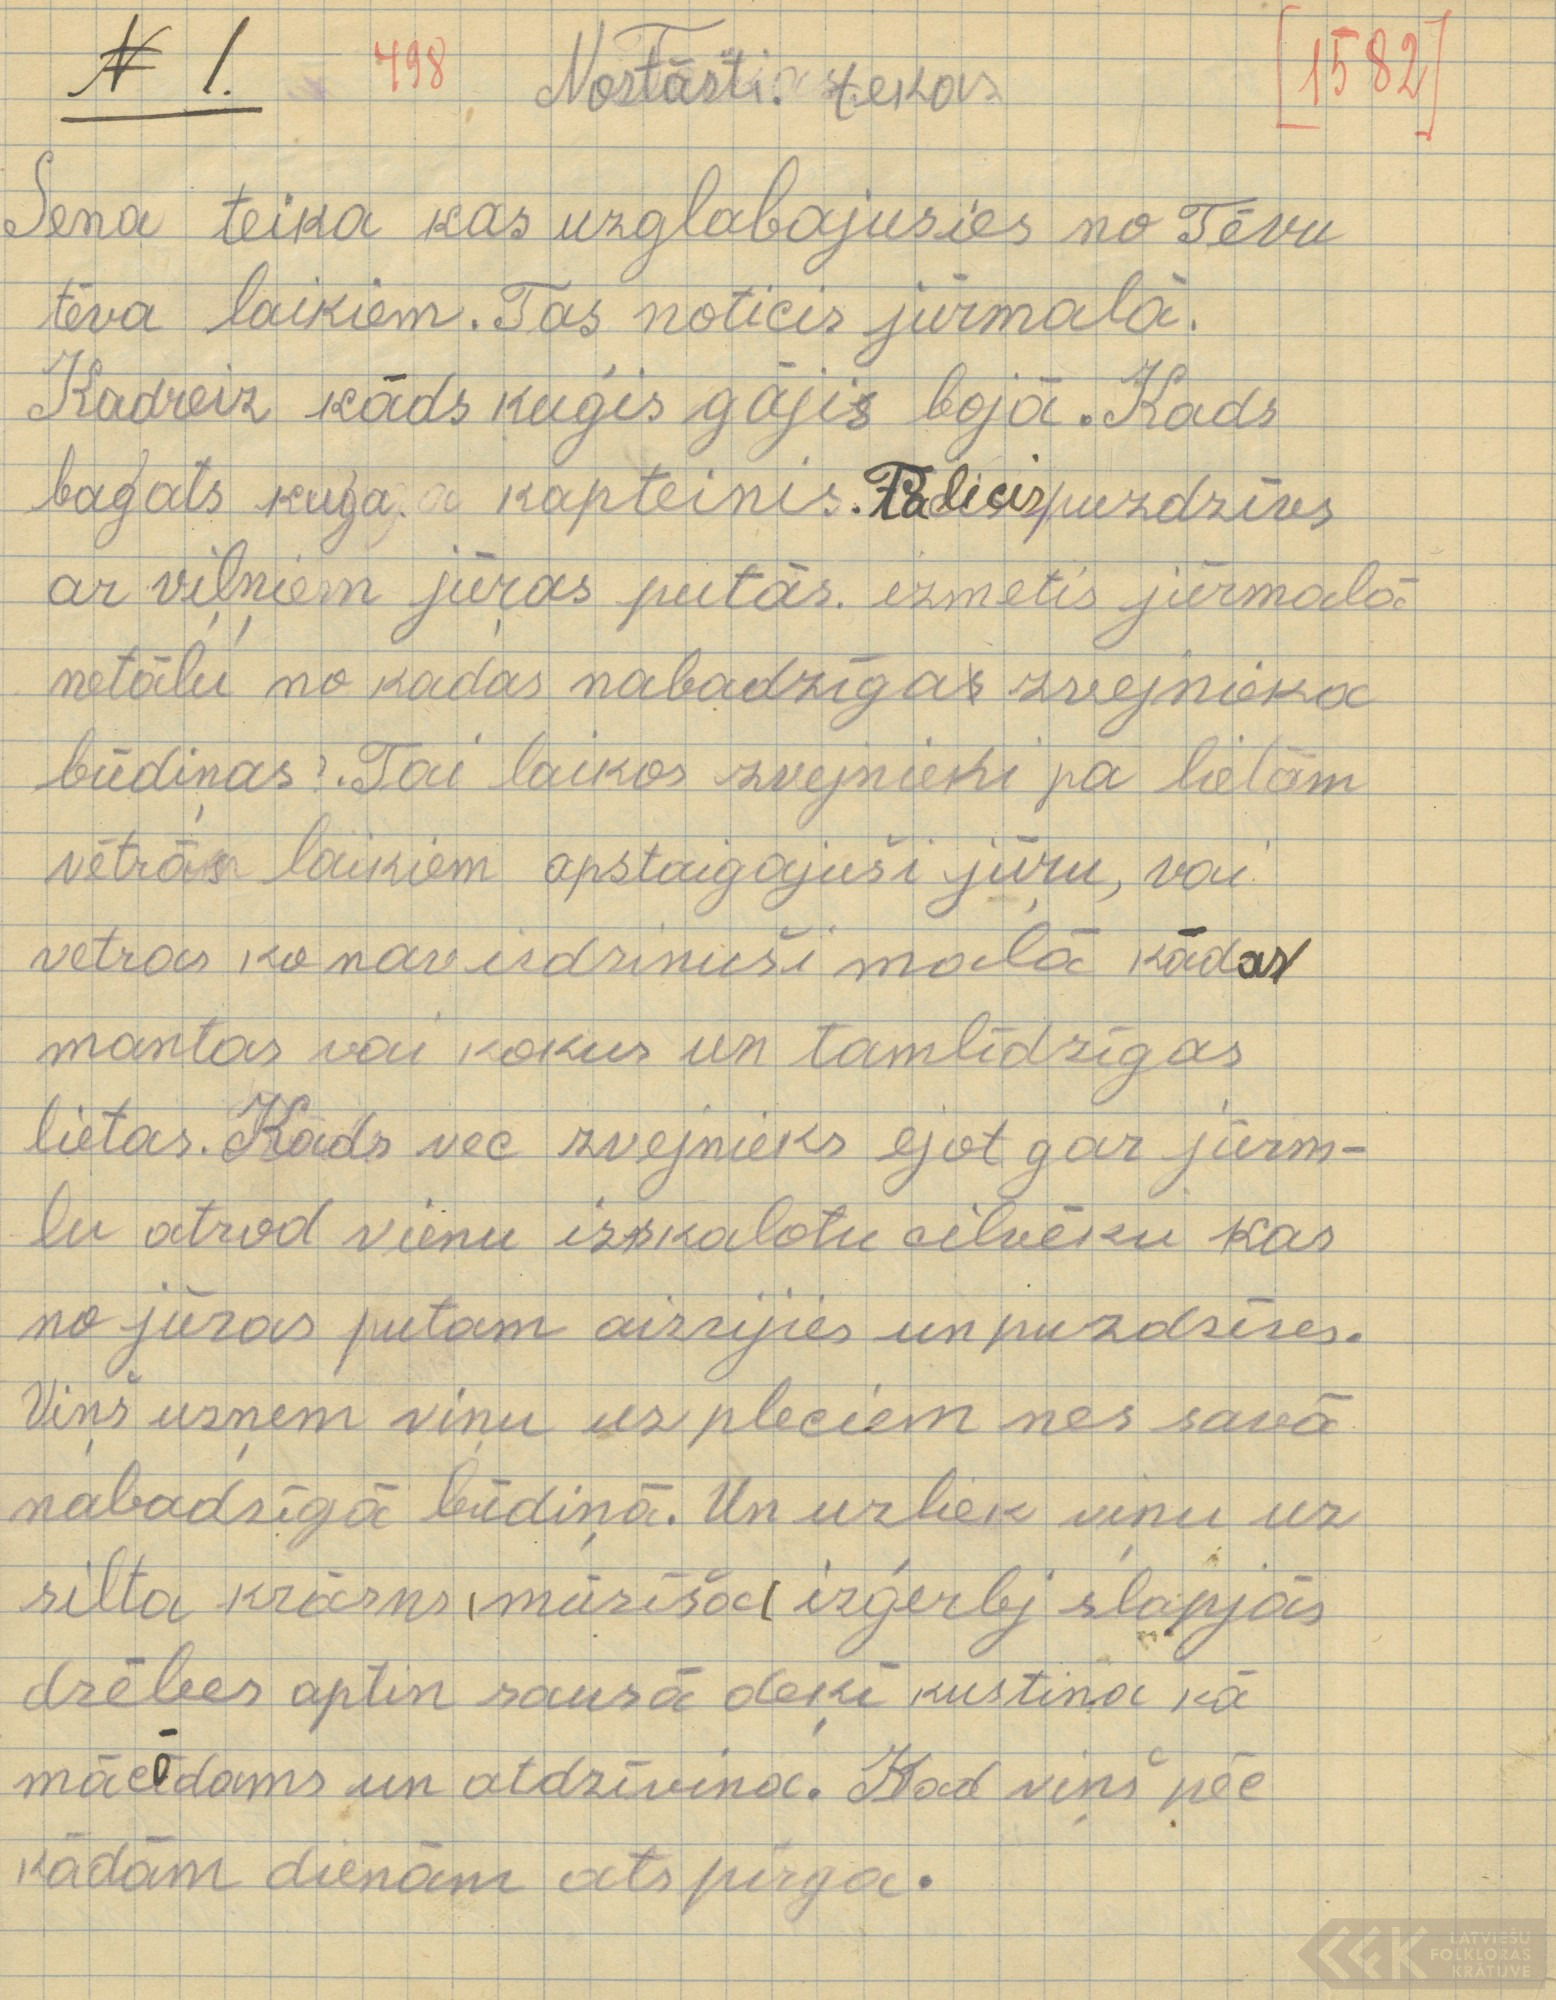 № 1. 498 Nostāsti. tekas [1582]
Sena teika kas uzglabajusies no Tēvu
tēva laikiem. Tas noticis jūrmalā.
Kadreiz kāds kuģis gājis bojā. Kads
bagats kuģa kapteinis. Palicis puzdzīvs
ar viļņiem jūŗas putās. izmetis jūrmalā
netālu no kaḑas nabadzīgas zvejnieka
būdiņas?. Tai laikos zvejnieki pa lielām
vētrās laikiem apstaigājuši jūŗu, vai
vetras ko nav izdzinuši malā kādas
mantas vai kokus un tamlīdzīgas
lietas. Kāds vec zvejnieks ejot gar jūrm-
lu atrod vienu izskalotu cilvēku kas
no jūras putam aizrijies un puzdzīves.
Viņš uzņem viņu uz pleciem nes savā
nabadzīgā būdiņā. Un uzliek viņu uz
silta krāsns, mūrīša, izģerbj slapjās
drēbes aptin sausā deķi kustina kā
mācēdams un atdzīvina. Kad viņš pēc
kādām dienām atspirga.
LATVIEŠU
FOLKLORAS
KRĀTUVE